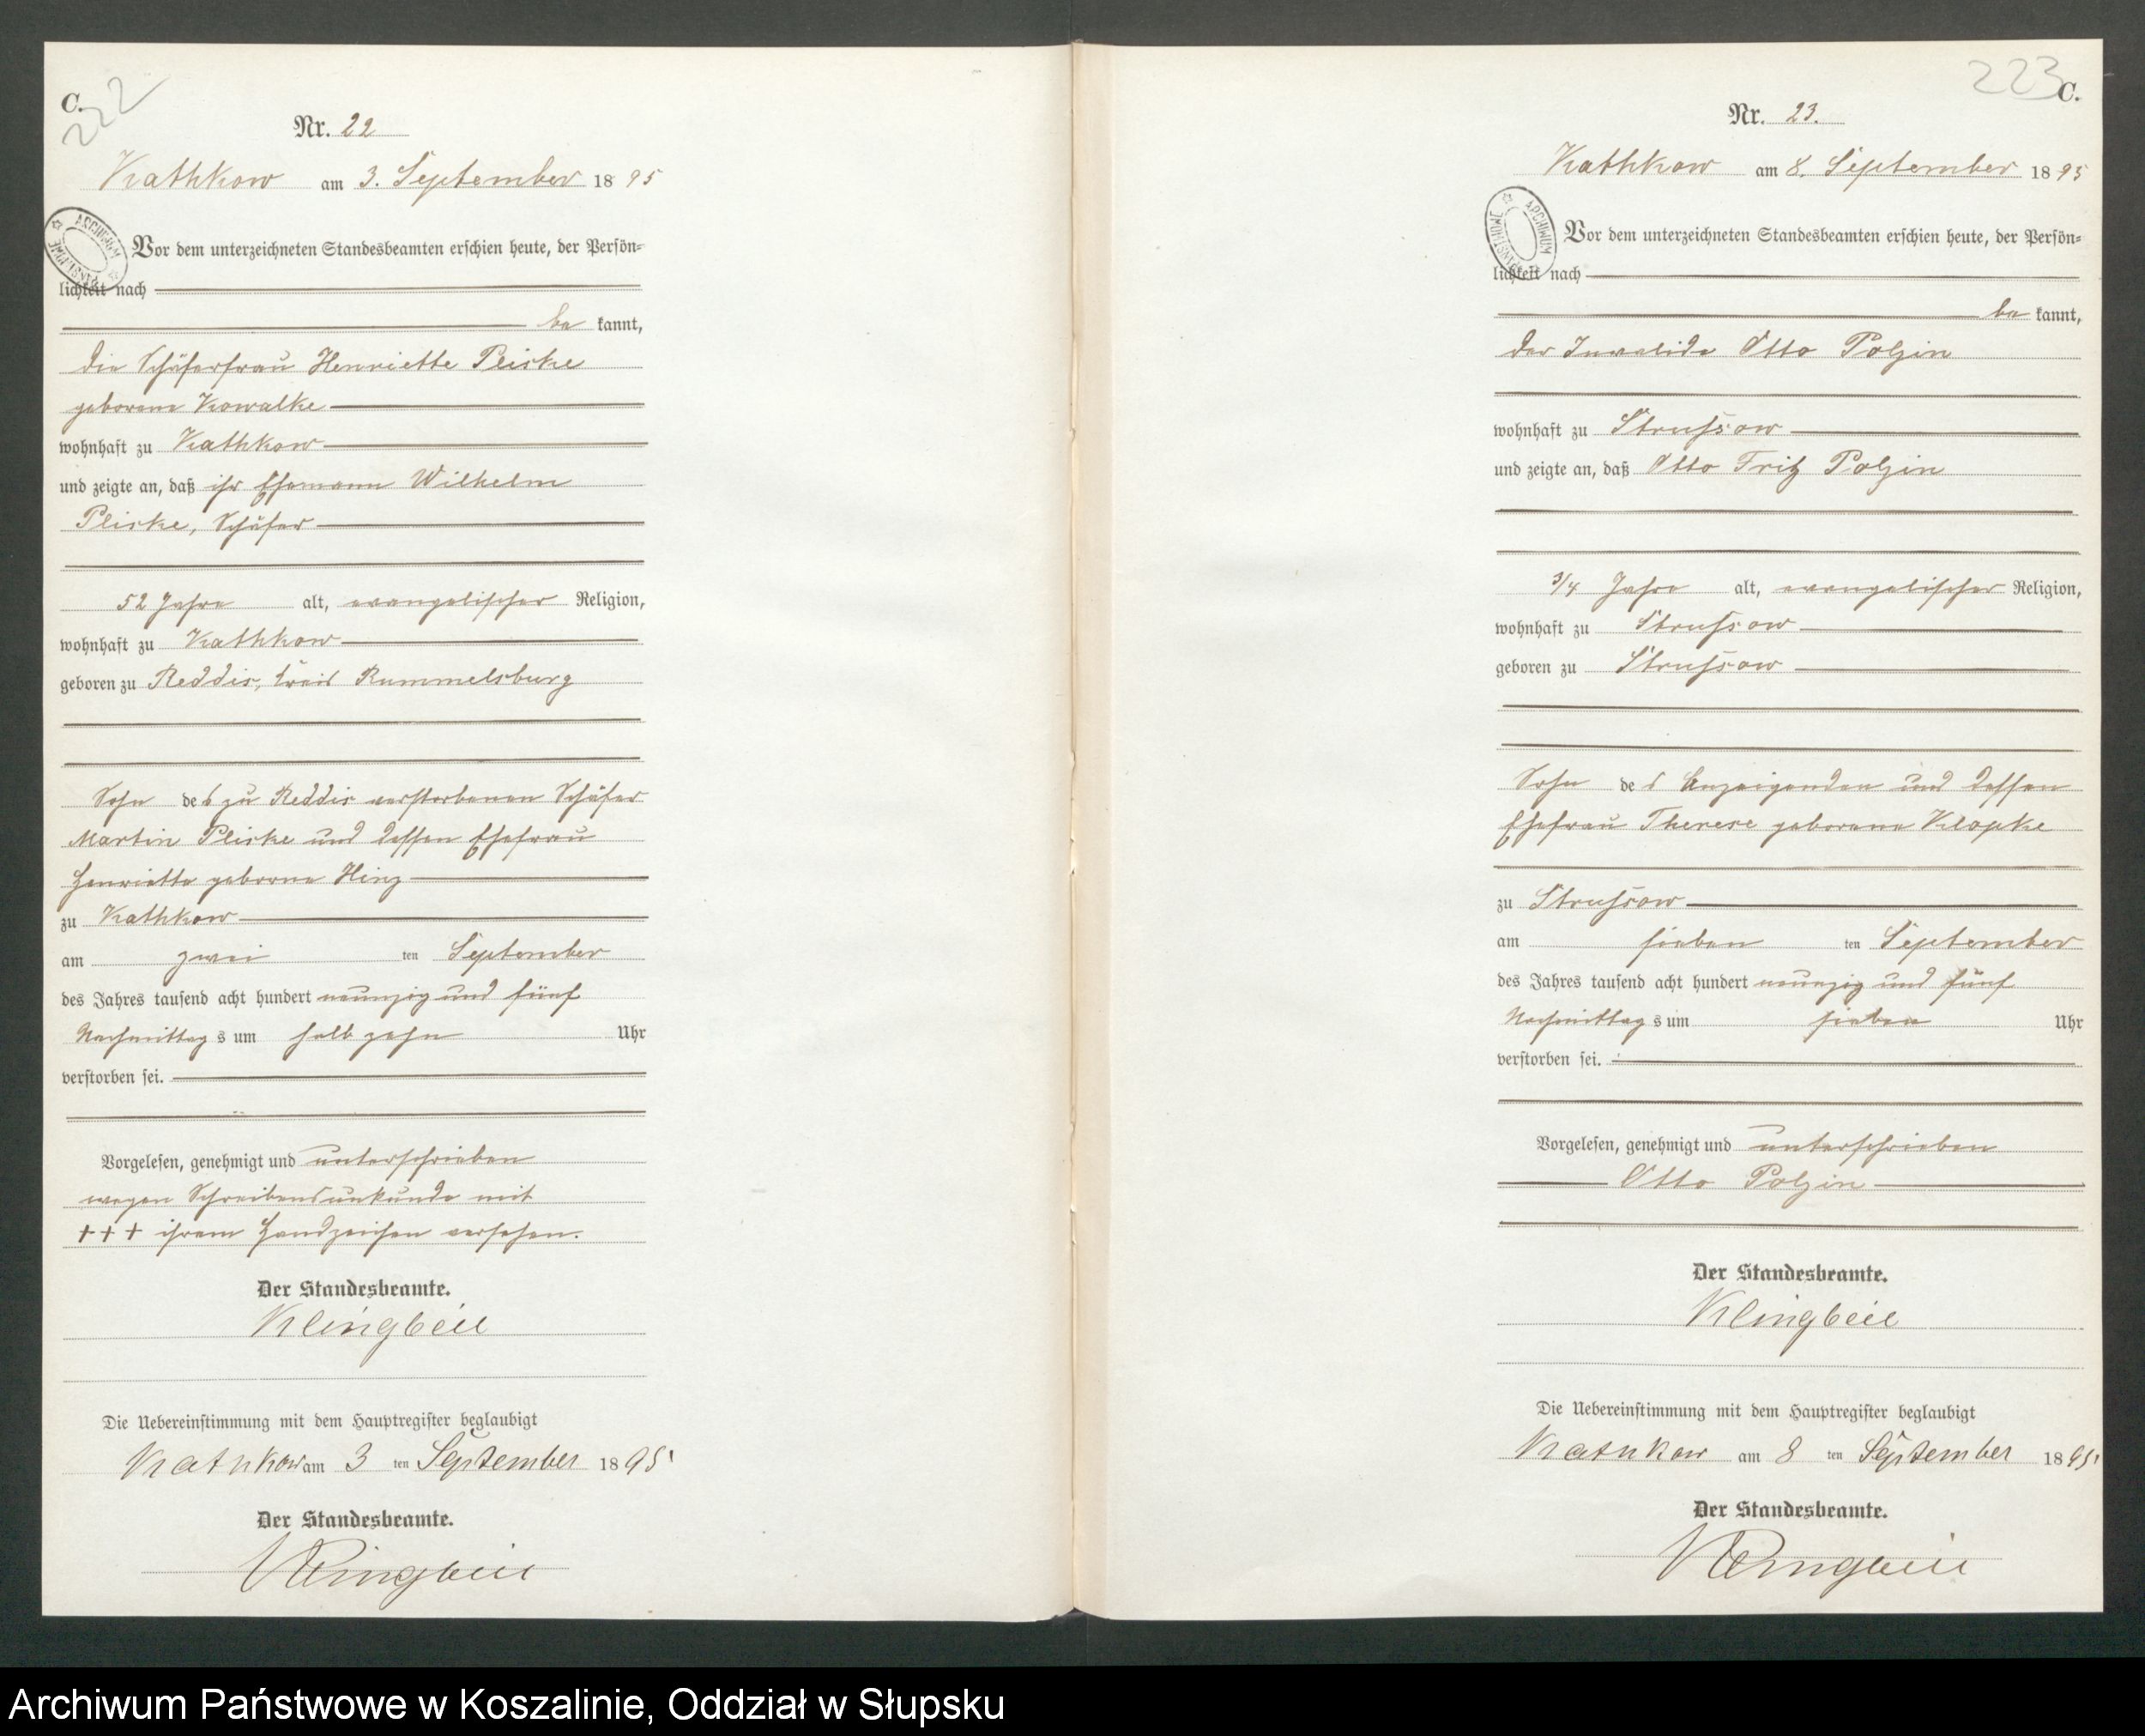 C.
222
Nr. 22
Kathkow am 3. September 1895
Vor dem unterzeichneten Standesbeamten erschien heute, der Persön=
lichkeit nach
bekannt,
die Schäferfrau Henriette Pliske
geborene Kowalke
wohnhaft zu Kathkow
und zeigte an, daß ihr Ehemann Wilhelm
Pliske, Schäfer
52 Jahre alt, evangelischer Religion,
wohnhaft zu Kathkow
geboren zu Reddis, Kreis Rummelsburg
Sohn des zu Reddis verstorbenen Schäfer
Martin Pliske und dessen Ehefrau
Henriette geborne Hinz
zu Kathkow
am zwei ten September
des Jahres tausend acht hundert neunzig und fünf
Nachmittags um halb zehn Uhr
verstorben sei.
Vorgelesen, genehmigt und unterschrieben
wegen Schreibensunkunde mit
+++ ihrem Handzeichen versehen.
Der Standesbeamte.
Klingbeil
Die Uebereinstimmung mit dem Hauptregister beglaubigt
Kathkow am 3 ten September 1895
Der Standesbeamte.
Klingbeil
ARCHIWUM PAŃSTWOWE
223
C.
Nr. 23.
Kathkow am 8. September 1895
Vor dem unterzeichneten Standesbeamten erschien heute, der Persön=
lichkeit nach
bekannt,
der Invalide Otto Polzin
wohnhaft zu Strussow
und zeigte an, daß Otto Fritz Polzin
3/4 Jahre alt, evangelischer Religion,
wohnhaft zu Strussow
geboren zu Strussow
Sohn des Anzeigenden und dessen
Ehefrau Therese geborene Klopke
zu Strussow
am sieben ten September
des Jahres tausend acht hundert neunzig und fünf
Nachmittags um sieben Uhr
verstorben sei.
Vorgelesen, genehmigt und unterschrieben
Otto Polzin
Der Standesbeamte.
Klingbeil
Die Uebereinstimmung mit dem Hauptregister beglaubigt
Kathkow am 8 ten September 1895
Der Standesbeamte.
Klingbeil
ARCHIWUM PAŃSTWOWE
Archiwum Państwowe w Koszalinie, Oddział w Słupsku